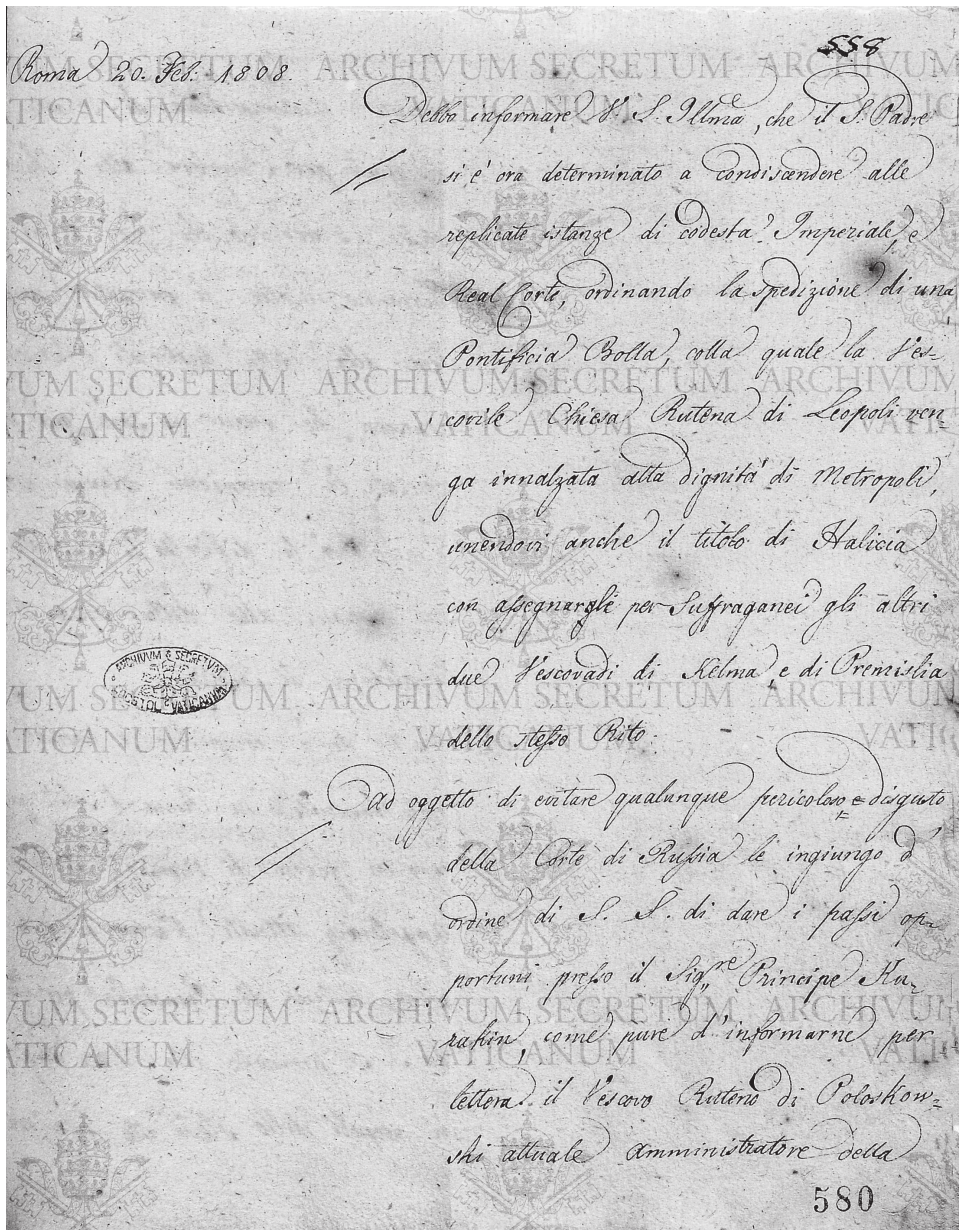 558
Roma 20. Feb. 1808.
Debbo informare V. S. Illma, che il S. Padre
si è ora determinato a condiscendere alle
replicate istanze di codesta Imperiale, e
Real Corte, ordinando la spedizione di una
Pontificia Bolla, colla quale la Ves=
covile Chiesa Rutena di Leopoli ven=
ga innalzata alla dignità di Metropoli,
unendovi anche il titolo di Halicia
con assegnargli per Suffraganei gli altri
due Vescovadi di Kelma e di Premislia
dello stesso Rito.
Ad oggetto di evitare qualunque pericoloso disgusto
della Corte di Russia le ingiungo d'
ordine di S. S. di dare i passi op=
portuni presso il Sigre Principe Ku=
rakin, come pure d'informarne per
lettera il Vescovo Ruteno di Poloskow=
ski attuale Amministratore della
580
ARCHIVUM SECRETUM VATICANUM